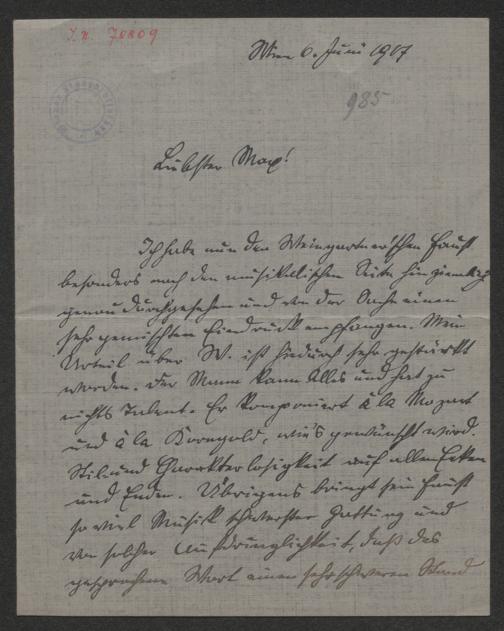 I.N. 70809
Wien 6. Juni 1907
985
Liebster Max!
Ich habe nun den Weingartner'schen Faust
besonders nach der musikalischen Seite hin ziemlich
genau durchgesehen und von der Sache einen
sehr gemischten Eindruck empfangen. Mein
Urteil über W. ist hiedurch sehr gestärkt
worden. Der Mann kann Alles und hat zu
nichts Talent. Er komponiert à la Mozart
und à la Korngold, wie's gewünscht wird.
Stil und Charakterlosigkeit auf allen Ecken
und Enden. Übrigens bringt sein Faust
so viel Musik schwerster Gattung und
von solcher Aufdringlichkeit, daß das
gesprochene Wort einen sehr schweren Stand